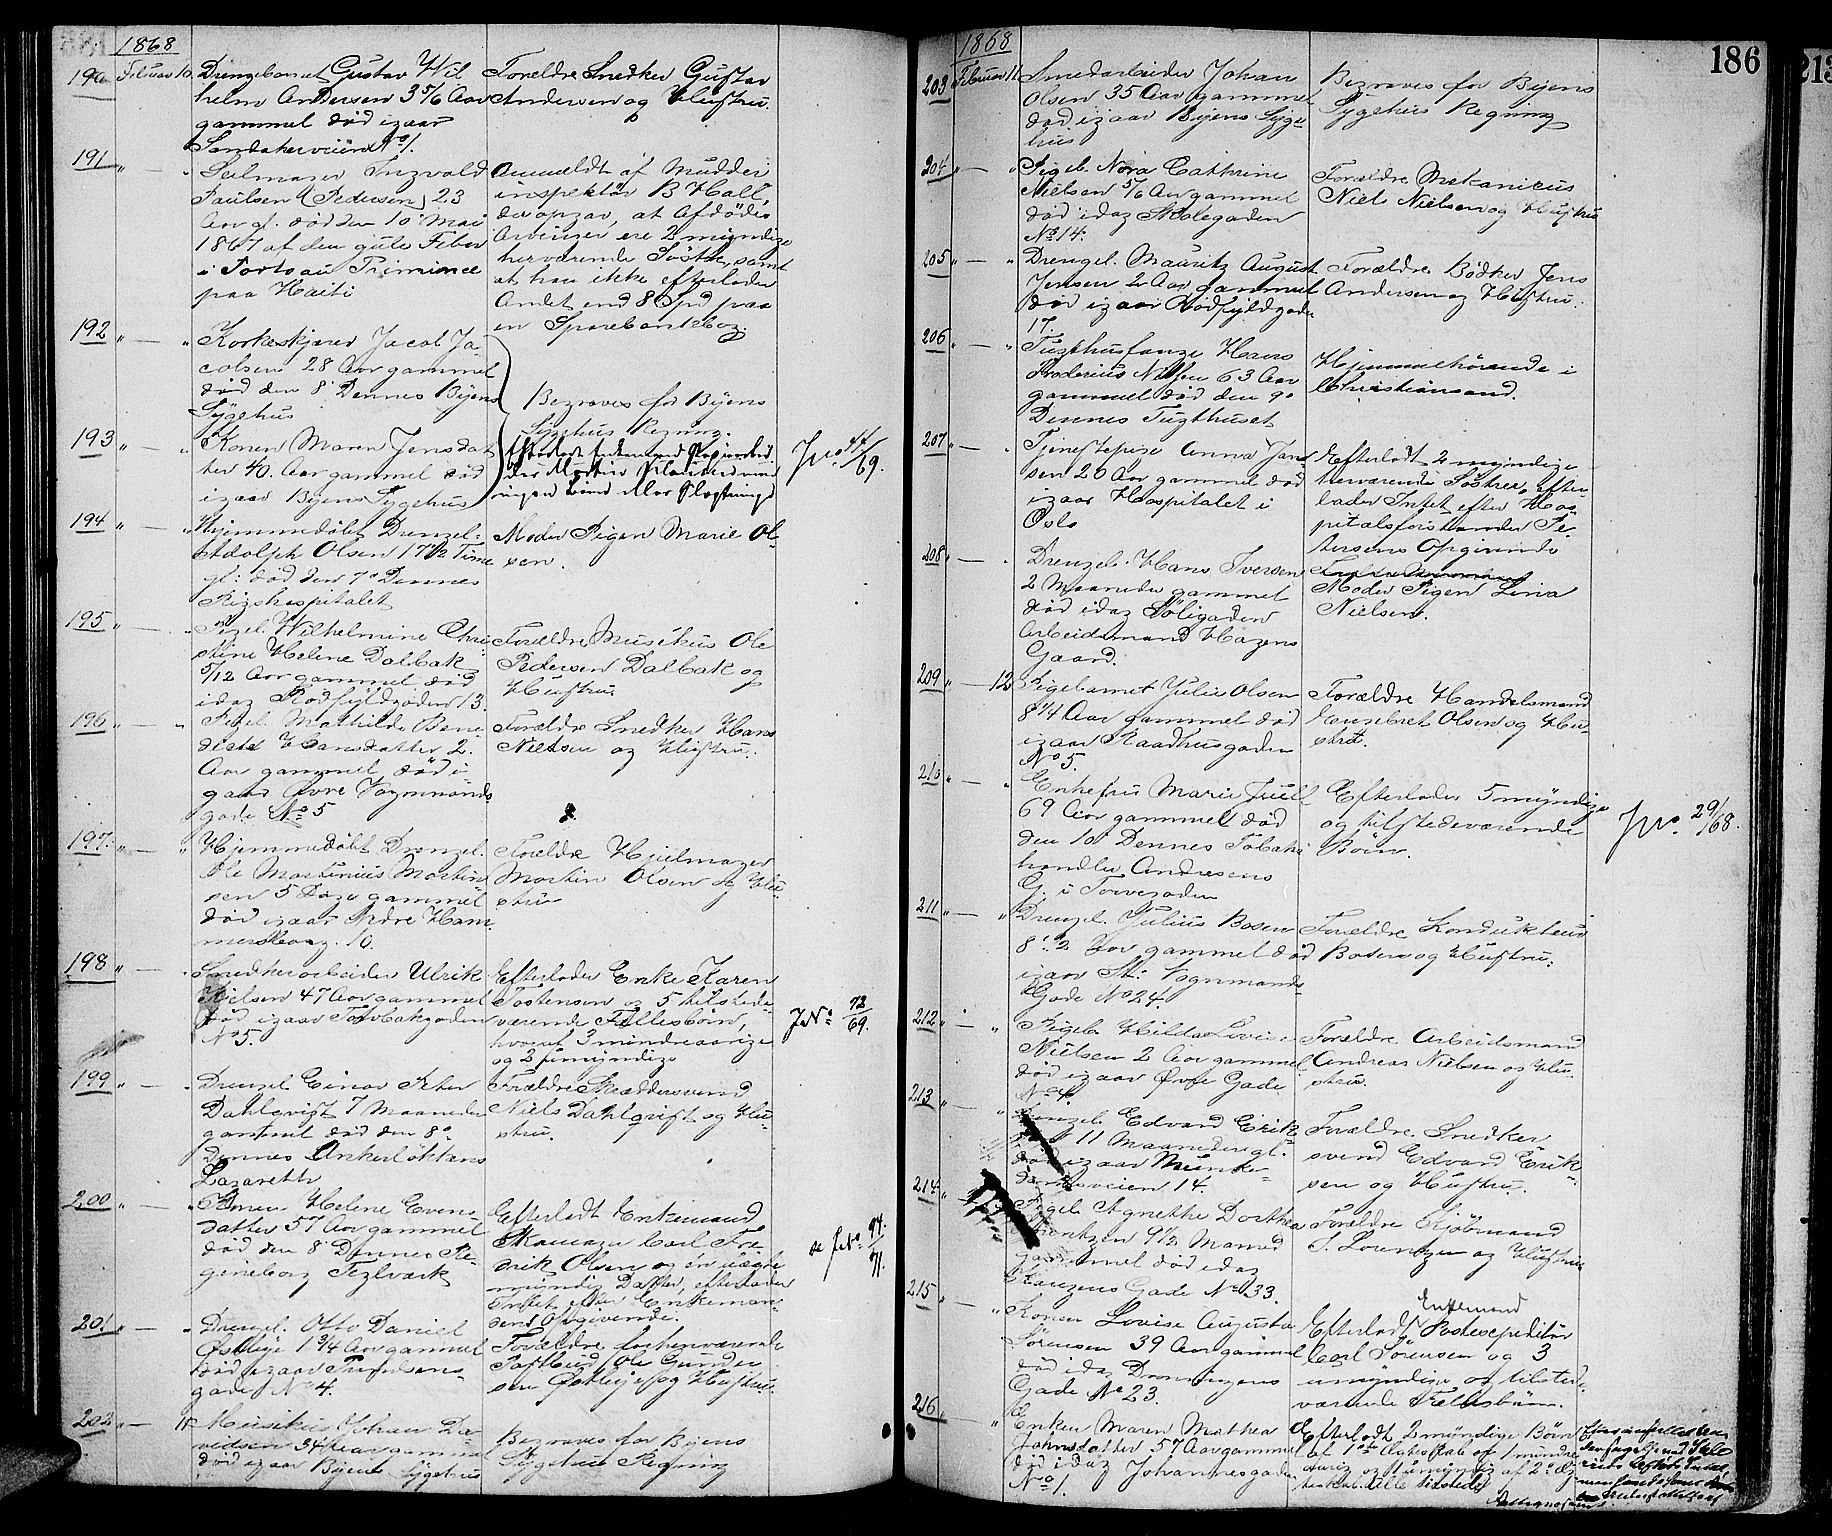 1868
190 Februar 10. Drengebarnet Gustav Wil
helm Andersen 3 5/6 Aar
gammel død igaar
Sandakerveien No 1.
Forældre Snedker Gustav
Andersen og Hustru.
191 " — " Seilmager Ingvald
Paulsen (Pedersen) 23
Aar gl. død den 10 Mai
1867 af den gule Feber
i Portoau Prinince
paa Haiti
Anmeldt af Mudder
inspektør B Hall,
der opgav, at Afdødes
Arvinger ere 2 myndige
herværende Søstre, samt
at han ikke efterlader
Andet end 8 Spd paa
en Sparebankbog.
192 " — " Korkeskjærer Jacob Ja-
cobsen 28 Aar gammel
død den 8 Dennes Byens
Sygehus
Begraves for Byens
Sygehus Regning.
193 " — " Konen Maren Jensdat
ter 40 Aar gammel død
igaar Byens Sygehus
Jno 44/69.
194 " — " Hjemmedøbt Drengeb.
Adolph Olsen 17 1/2 Time
gl. død den 7 Dennes
Rigshospitalet
Moder Pigen Marie Ol-
sen.
195 " — " Pigeb. Wilhelmine Chri
stine Helene Dalbak
5/12 Aar gammel død
idag Rødfyldgaden 13.
Forældre Musikus Ole
Pedersen Dalbak og
Hustru.
196 " — " Pigeb. Mathilde Bene
dicte Hansdatter 2
Aar gammel død i
gaar Øvre Vognmands
gade No 5
Forældre Snedker Hans
Nielsen og Hustru.
197. " — " Hjemmedøbt Drengeb.
Ole Martinius Martin
sen 5 Dage gammel
død igaar Nedre Ham-
mersborg 10.
Forældre Hjulmager
Martin Olsen og Hu-
stru
198 " — " Snedkerarbeider Ulrik
Nielsen 47 Aar gammel
død igaar Torvbakgaden
No 5.
Efterlader Enke Karen
Tostensen og 5 tilstede-
værende Fællesbørn,
hvoraf 3 mindreaarige
og 2 umyndige
JNo 72/69.
199 " — " Drengeb. Einar Peter
Dahlqvist 7 Maaneder
gammel død den 8
Dennes Ankerløkkens
Lazareth
Forældre Skræddersvend
Niels Dahlqvist og Hu-
stru.
200 " — " Konen Helene Evens-
datter 57 Aar gammel
død den 8 Dennes Re-
gineborg Teglværk
Efterladt Enkemand
Skomager Carl Fre-
drik Olsen og én uægte
myndig Datter, efterlader
Intet efter Enkeman-
dens Opgivende.
se Jno 94/71.
201 " — " Drengeb. Otto Daniel
Østlige 1 3/4 Aar gammel
død igaar
gade No 4.
Forældre forhenværende
Postbud Ole Gunder
sen Østlige og Hustru
202 " — 11 Musikus Johan Da-
vidsen 34 Aar gammel
død igaar Byens Sygehus
Begraves for Byens
Sygehus Regning
1868
186
213
203 Februar 11 Smedarbeider Johan
Olsen 35 Aar gammel
død igaar Byens Syge-
hus
Begraves for Byens
Sygehus Regning
204 " — " Pigeb. Nora Cathrine
Nielsen 5/6 Aar gammel
død idag Skolegaden
No 14.
Forældre Mekanicus
Niels Nielsen og Hustru
205 " — " Drengeb. Mauritz August
Jensen 2 Aar gammel
død igaar Rødfyldgaden
17.
Forældre Bødker Jens
Andersen og Hustru.
206 " — " Tugthusfange Hans
Frederius Nilsen 63 Aar
gammel død den 9
Dennes Tugthuset
Hjemmehørende i
Christianssand.
207 " — " Tjenestepige Anna Jan
sen 20 Aar gammel død
igaar Hospitalet i
Oslo
Efterladt 2 myndige
herværende Søstre, efter-
lader Intet efter Hos
pitalsforstander Pe-
tersens Opgivende
208 " — " Drengeb. Hans Iversen
2 Maaneder gammel
død idag Møllergaden
Arbeidsmand Hagens
Gaard.
Moder Pigen Lina
Nielsen.
209 " — 12 Pigebarnet Julie Olsen
8 1/4 Aar gammel død
igaar Raadhusgaden
No 5.
Forældre Handelsmand
Engebret Olsen og Hu-
stru.
210 " — " Enkefru Marie Juell
69 Aar gammel død
den 10 Dennes Tobaks
handler Andresens
G. i Torvegaden
Efterlader 5 myndige
og tilstedeværende
Børn.
Jno. 29/68.
211 " — " Drengeb. Julius Bosen
8 1/2 Aar gammel død
igaar St. Vognmands-
Gade No 24.
Forældre Konduktør
Bosen og Hustru.
212 " — " Pigeb. Hilda Lovise
Nielsen 2 Aar gammel
død igaar Øvre Gade
No 4.
Forældre Arbeidsmand
Andreas Nielsen og Hu-
stru.
213 " — " Drengeb. Edvard Erik-
sen 11 Maaneder gl.
død igaar Munke-
damsveien 14.
Forældre Snedker
svend Edvard Erik-
sen og Hustru.
214 " Pigeb. Agnethe Dorthea
Lorentzen 9 1/2 Maaned
gammel død idag
Gade No 33.
Forældre Kjøbmand
S. Lorentzen og Hustru
215 " — " Konen Lovise Augusta
Sørensen 39 Aar gammel
død idag Dronningens
Gade No 23.
Enkemand
Efterladt Postexpeditør
Carl Sørensen og 3
umyndige og tilstede-
værende Fællesbørn.
216 " — " Enken Maren Mathea
Johnsdatter 57 Aar gammel
død idag Johannesgaden
No 1.
Efterladt 2 myndige Børn
af 1ste Ægteskab og 1 mindre
aarig og 1 umyndig af 2det Æg
teskab. alle tilstede